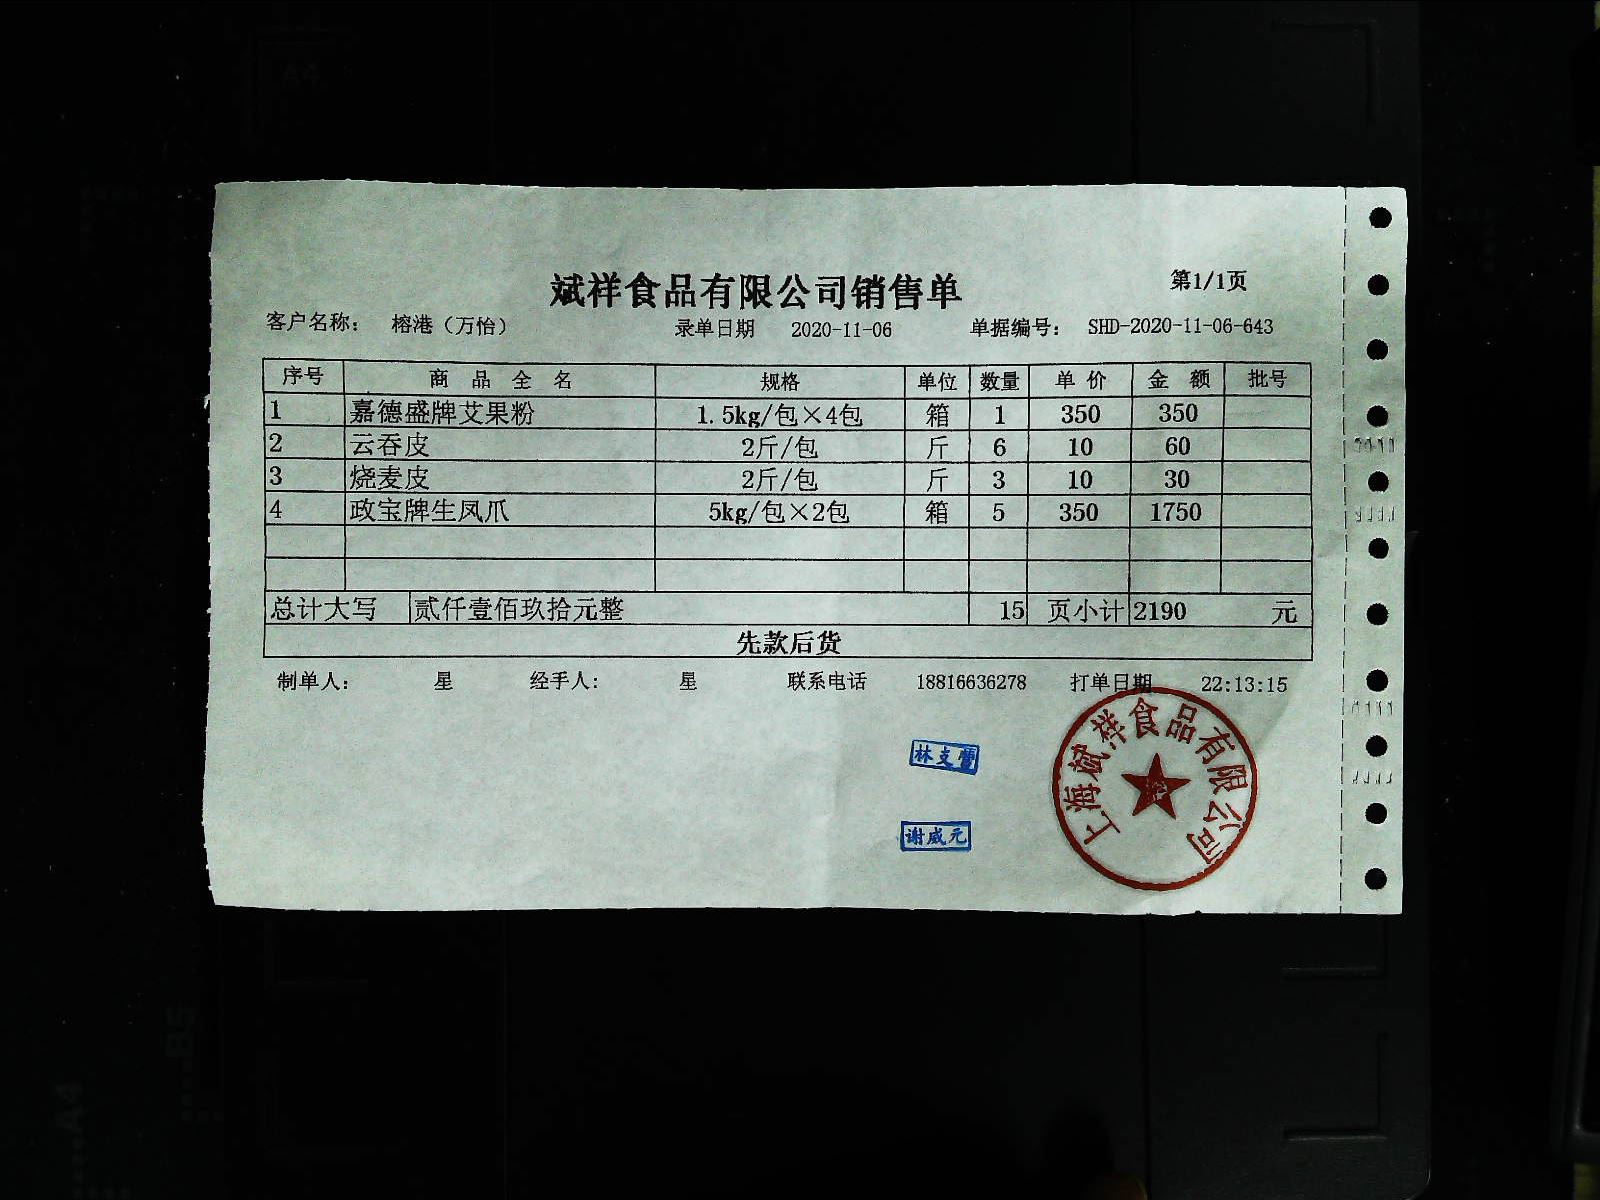 斌祥食品有限公司销售单 第1/1页
客户名称： 榕港（万怡） 录单日期 2020-11-06 单据编号： SHD-2020-11-06-643
序号 商品全名 规格 单位 数量 单价 金额 批号
1 嘉德盛牌艾果粉 1.5kg/包×4包 箱 1 350 350
2 云吞皮 2斤/包 斤 6 10 60
3 烧麦皮 2斤/包 斤 3 10 30
4 政宝牌生凤爪 5kg/包×2包 箱 5 350 1750
总计大写 贰仟壹佰玖拾元整 15 页小计 2190 元
先款后货
制单人： 星 经手人： 星 联系电话 18816636278 打单日期 22:13:15
上海斌祥食品有限公司
林支
谢成元
A4
B5